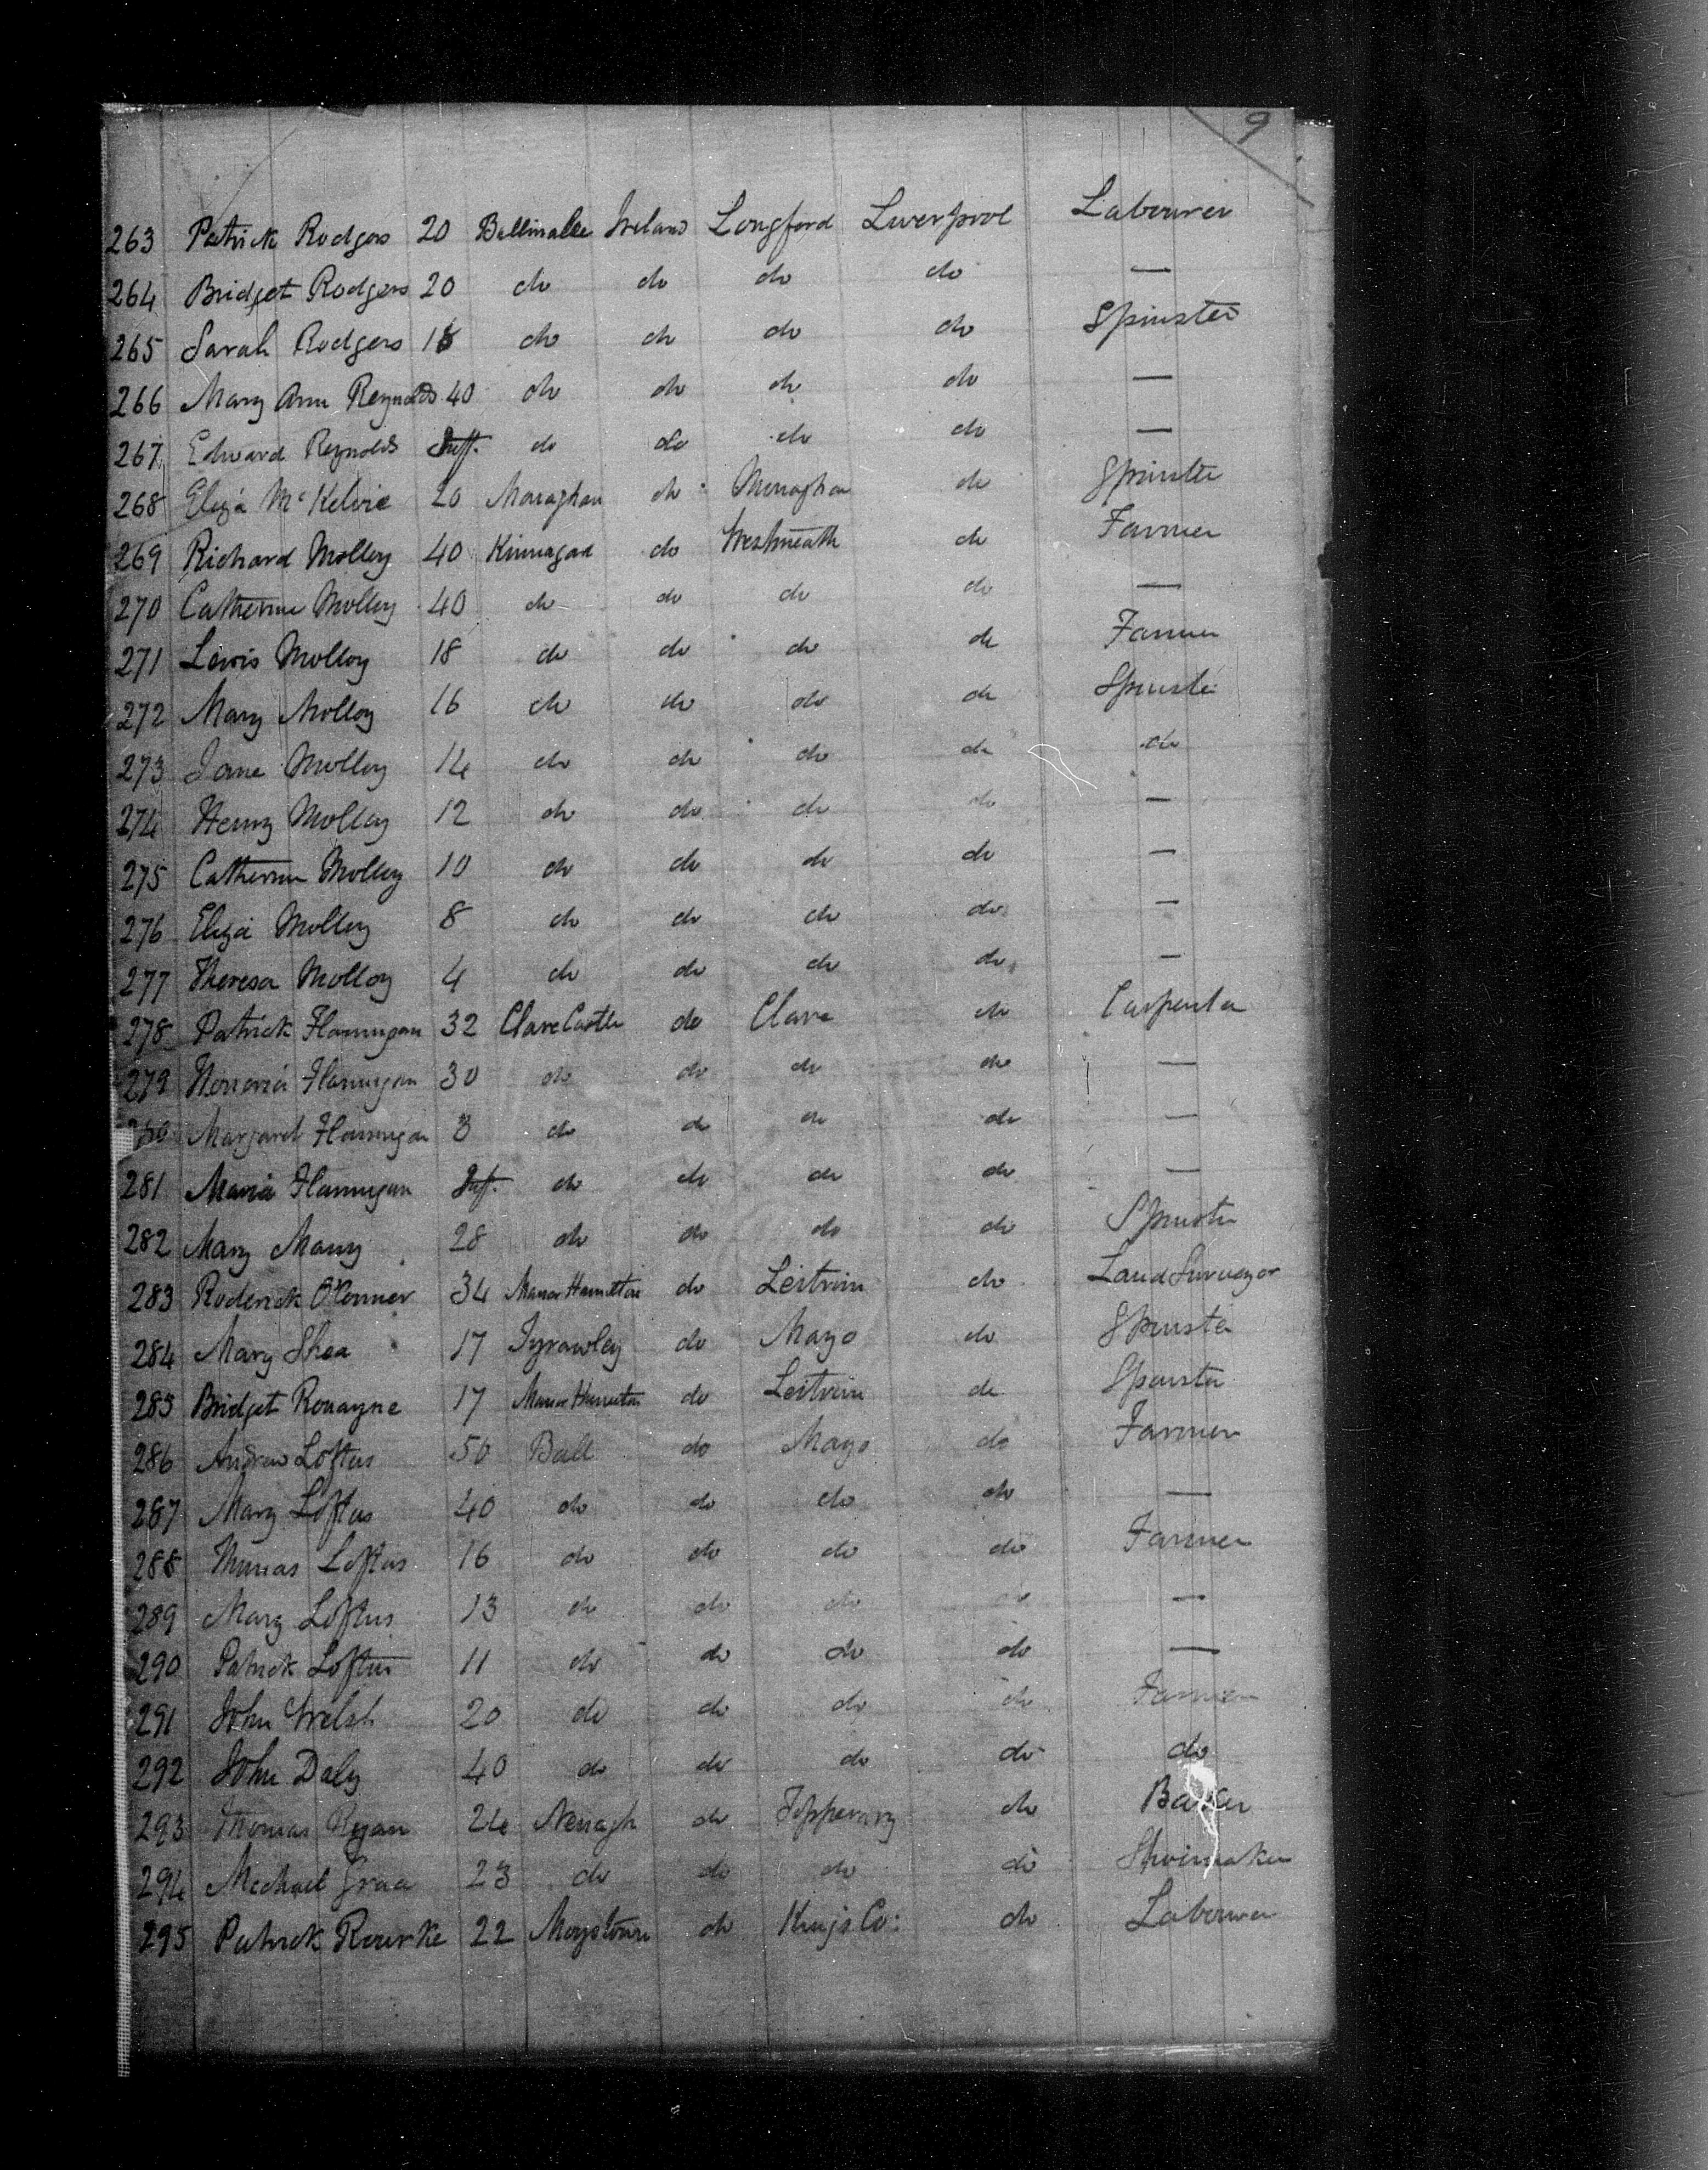 9
263 Patrick Rodgers 20 Ballinalee Ireland Longford Liverpool Labourer
264 Bridget Rodgers 20 do do do do —
265 Sarah Rodgers 18 do do do do Spinster
266 Mary Ann Reynolds 40 do do do do —
267 Edward Reynolds Inft. do do do do —
268 Eliza McKelvie 20 Monaghan do Monaghan do Spinster
269 Richard Molloy 40 Kinnagad do Westmeath do Farmer
270 Catherine Molloy 40 do do do do —
271 Lewis Molloy 18 do do do do Farmer
272 Mary Molloy 16 do do do do Spinster
273 Jane Molloy 14 do do do do do
274 Henry Molloy 12 do do do do —
275 Catherine Molloy 10 do do do do —
276 Eliza Molloy 8 do do do do —
277 Theresa Molloy 4 do do do do —
278 Patrick Flannigan 32 Clare Castle do Clare do Carpenter
279 Honoria Flannigan 30 do do do do —
280 Margaret Flannigan 3 do do do do —
281 Maria Flannigan Inft. do do do do —
282 Mary 28 do do do do Spinster
283 Roderick O'Conner 34 Manor Hamilton do Leitrim do Land Surveyor
284 Mary Shea 17 Tyrawley do Mayo do Spinster
285 Bridget Ronayne 17 Manor Hamilton do Leitrim do Spinster
286 Andrew Loftus 50 Ball do Mayo do Farmer
287 Mary Loftus 40 do do do do —
288 Thomas Loftus 16 do do do do Farmer
289 Mary Loftus 13 do do do do —
290 Patrick Loftus 11 do do do do —
291 John Welsh 20 do do do do Farmer
292 John Daly 40 do do do do do
293 Thomas Ryan 24 Nenagh do Tipperary do Baker
294 Michael Grace 23 do do do do Shoemaker
295 Patrick Rourke 22 Moystown do Kings Co: do Labourer